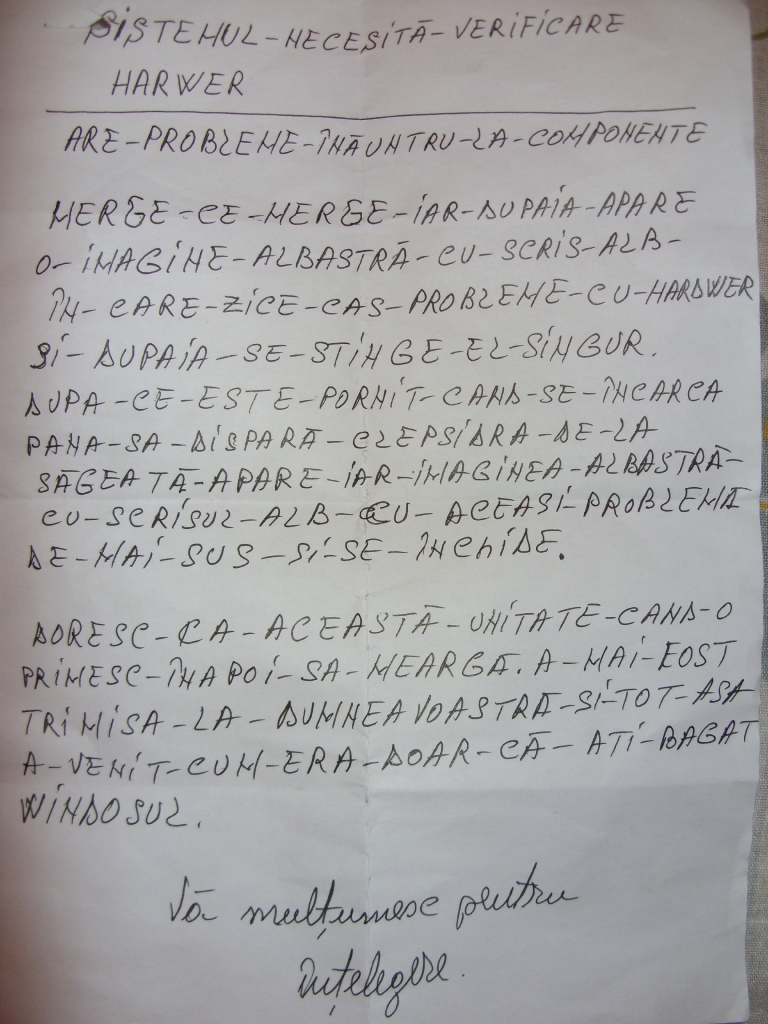 SISTEMUL-NECESITĂ-VERIFICARE
HARWER
ARE-PROBLEME-ÎNĂUNTRU-LA-COMPONENTE
MERGE-CE-MERGE-IAR-DUPAIA-APARE
O-IMAGINE-ALBASTRĂ-CU-SCRIS-ALB-
ÎN-CARE-ZICE-CAS-PROBLEME-CU-HARDWER
ȘI-DUPAIA-SE-STINGE-EL-SINGUR.
DUPA-CE-ESTE-PORNIT-CAND-SE-ÎNCARCA
PANA-SA-DISPARĂ-CLEPSIDRA-DE-LA
SĂGEATĂ-APARE-IAR-IMAGINEA-ALBASTRĂ-
CU-SCRISUL-ALB-CU-ACEASI-PROBLEMĂ
DE-MAI-SUS-SI-SE-ÎNCHIDE.
DORESC-CA-ACEASTĂ-UNITATE-CAND-O
PRIMESC-ÎNAPOI-SA-MEARGĂ. A-MAI-FOST
TRIMISA-LA-DUMNEAVOASTRĂ-SI-TOT-ASA
A-VENIT-CUM-ERA-DOAR-CĂ-ATI-BAGAT
WINDOSUL.
Vă mulțumesc pentru
înțelegere.